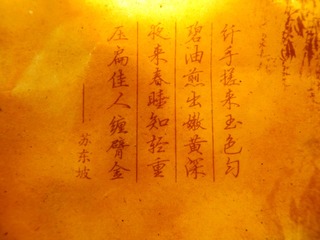 纤手搓来玉色匀
碧油煎出嫩黄深
夜来春睡知轻重
压扁佳人缠臂金
——苏东坡